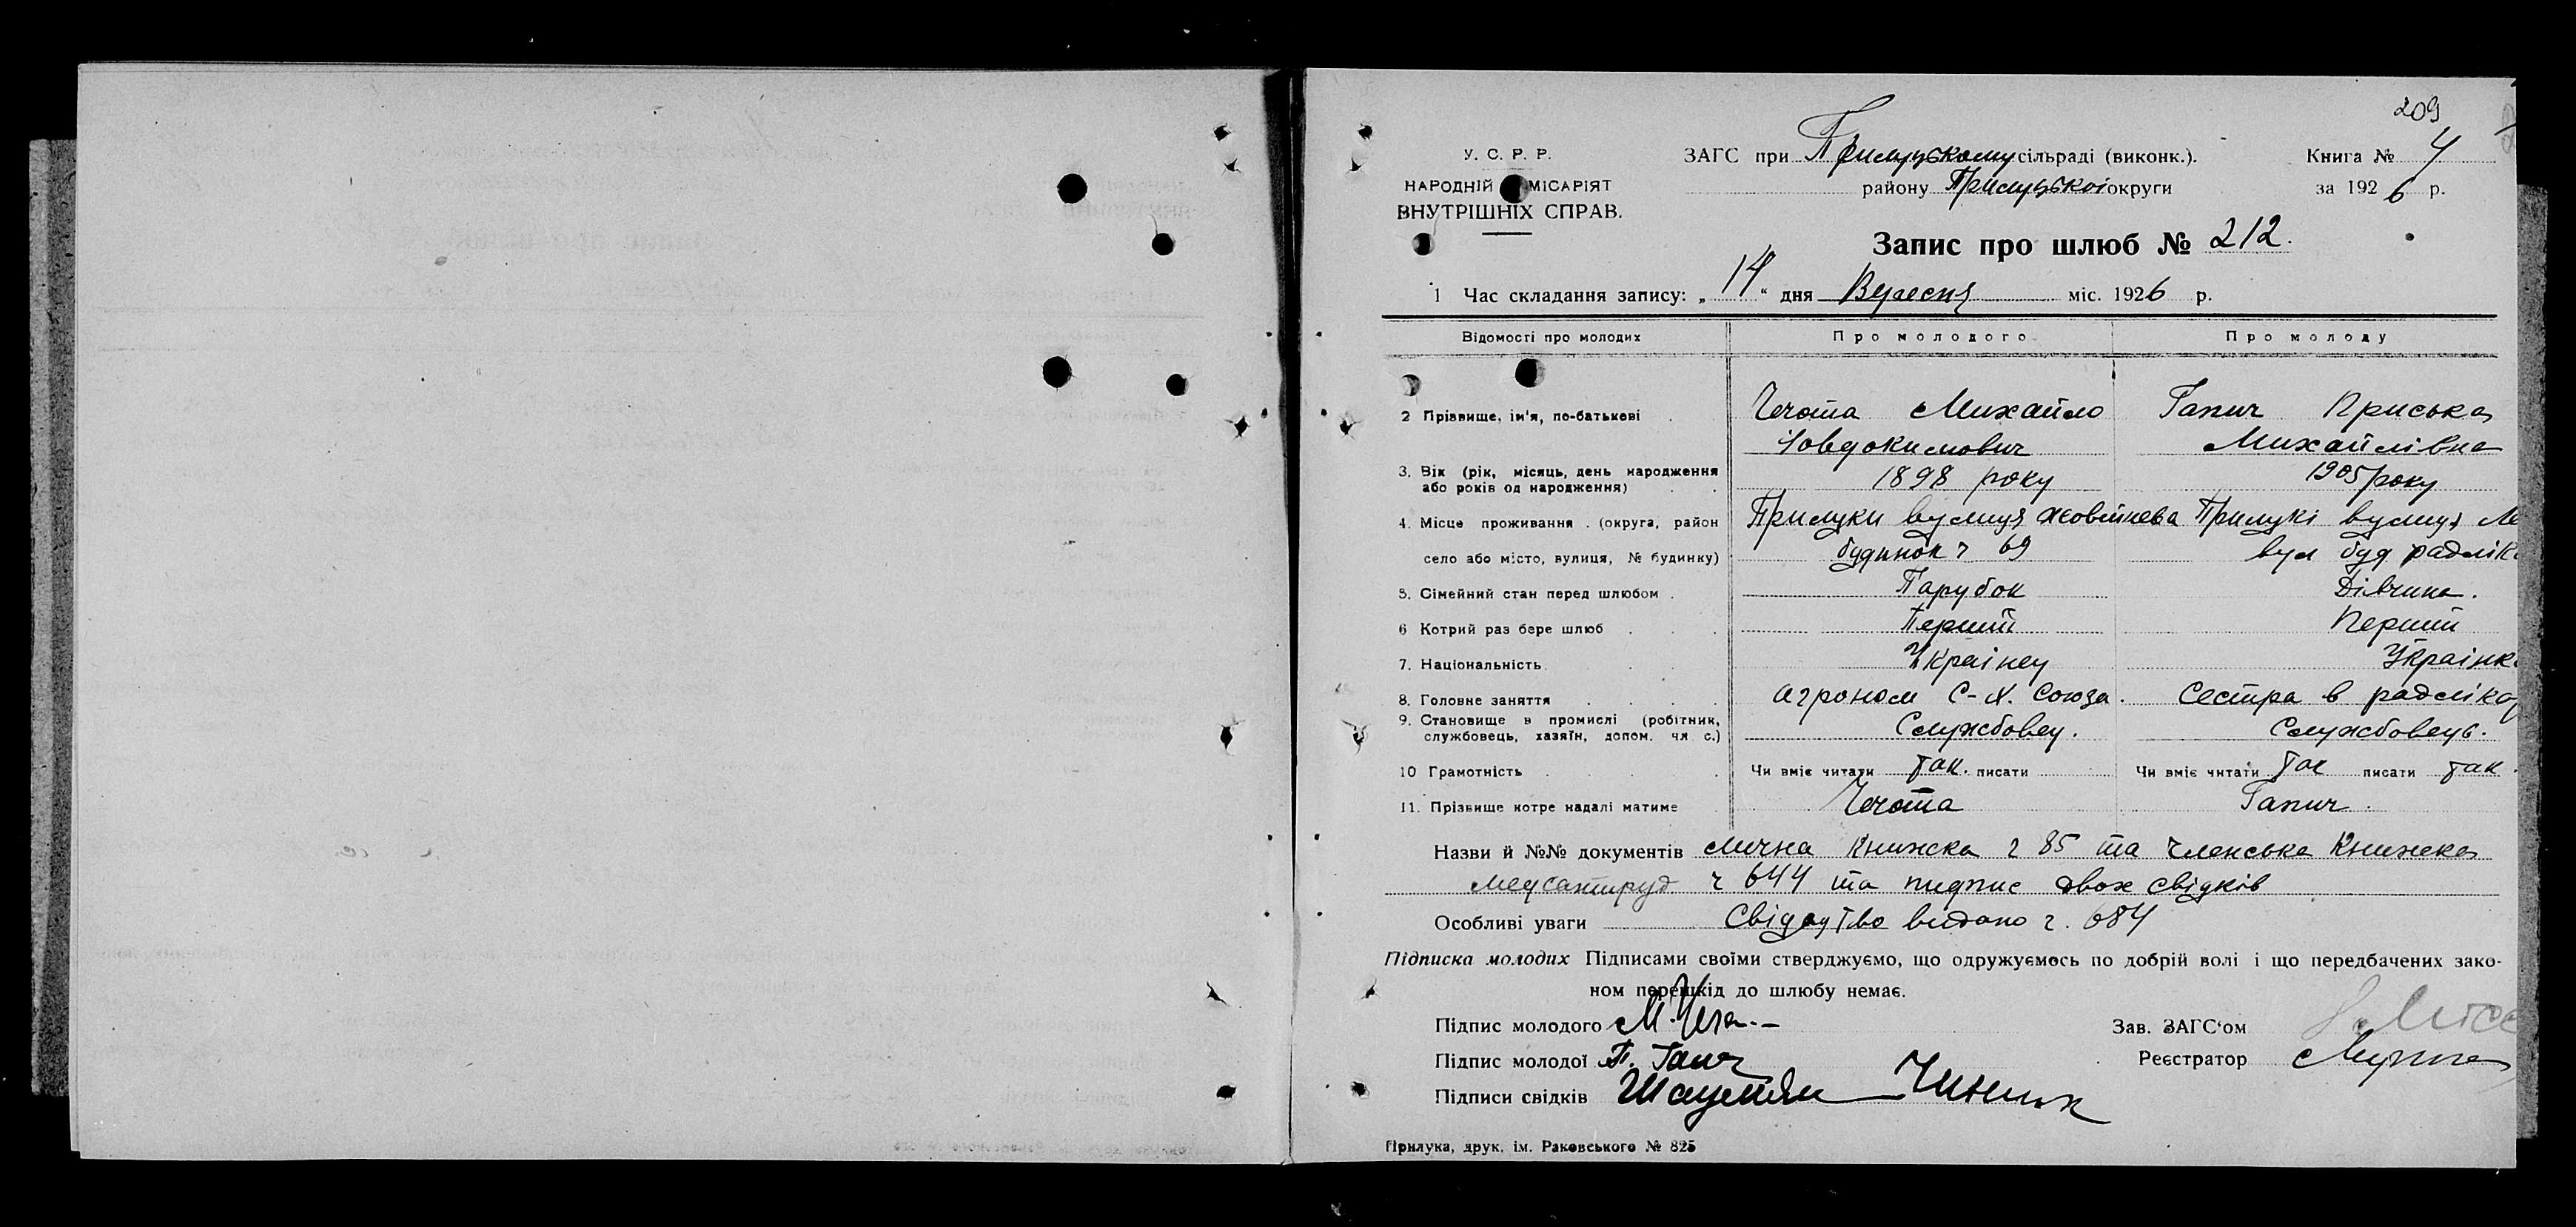 209
У. С. Р. Р.
НАРОДНІЙ МІСАРІЯТ
ВНУТРІШНІХ СПРАВ.
ЗАГС при Прилуцькому сільраді (виконк.).
району Прилуцької округи
Книга № 4
за 1926 р.
Запис про шлюб № 212.
1 Час складання запису: „14“ дня Вересня міс. 1926 р.
Відомості про молодих Про молодого Про молоду
2 Прізвище, ім'я, по-батькові Чечота Михайло Гапич Приська
Йовдокимович Михайлівна
3. Вік (рік, місяць, день народження
або років од народження)
1898 року 1905 року
4. Місце проживання (округа, район
село або місто, вулиця, № будинку)
Прилуки вулиця Жовтнева Прилукі вулиця
будинок ч 69 вул буд радліка
5. Сімейний стан перед шлюбом Парубок Дівчина.
6 Котрий раз бере шлюб Перший Перший
7. Національність Українец Українка
8. Головне заняття агроном С-Х. Союза. Сестра в радлікар
9. Становище в промислі (робітник,
службовець, хазяїн, допом. чл с.)
Службовец. Службовець.
10 Грамотність Чи вміє читати так. писати Чи вміє читати так писати так.
11. Прізвище котре надалі матиме Чечота Гапич.
Назви й №№ документів лична Книжка ч 85 та членська Книжека
медсантруд ч 644 та підпис двох свідків
Особливі уваги Свідоцтво видано ч. 684
Підписка молодих Підписами своїми стверджуємо, що одружуємось по добрій волі і що передбачених зако-
ном перешкід до шлюбу немає.
Підпис молодого М. Чеч
Зав. ЗАГС'ом
Підпис молодої П. Гапич
Реєстратор
Підписи свідків Шаумян
Прилука, друк. ім. Раковського № 825